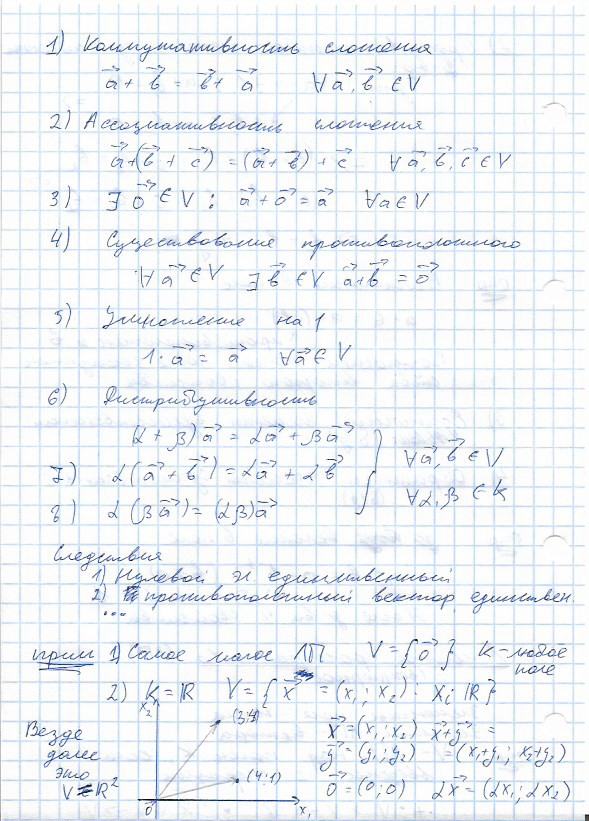 1) Коммутативность сложения
a⃗ + b⃗ = b⃗ + a⃗ ∀ a⃗, b⃗ ∈ V
2) Ассоциативность сложения
a⃗ + (b⃗ + c⃗) = (a⃗ + b⃗) + c⃗ ∀ a⃗, b⃗, c⃗ ∈ V
3) ∃ 0⃗ ∈ V : a⃗ + 0⃗ = a⃗ ∀a ∈ V
4) Существование противоположного
∀ a⃗ ∈ V ∃ b⃗ ∈ V a⃗ + b⃗ = 0⃗
5) Умножение на 1
1 · a⃗ = a⃗ ∀a⃗ ∈ V
6) Дистрибутивность
(α + β) a⃗ = αa⃗ + βa⃗
7) α(a⃗ + b⃗) = αa⃗ + αb⃗ ∀a⃗, b⃗ ∈ V
8) α(βa⃗) = (αβ)a⃗ ∀α, β ∈ K
Следствия
1) Нулевой эл единственный
2) противоположный вектор единствен.
...
прим 1) Самое малое ЛП V = {0⃗} K – любое
поле
2) K = ℝ V = {x⃗ = (x₁; x₂) : xᵢ ℝ}
x₂
(3;4)
x⃗ = (x₁; x₂) x⃗ + y⃗ =
y⃗ = (y₁; y₂) = (x₁+y₁; x₂+y₂)
Везде
далее
это
V = ℝ²
(4;1)
0⃗ = (0; 0) αx⃗ = (αx₁; αx₂)
0 x₁